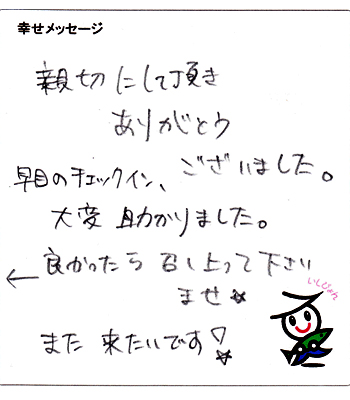 幸せメッセージ
親切にして頂き
ありがとう
ございました。
早目のチェックイン、
大変 助かりました。
← 良かったら 召し上って下さり
ませ☆
いしぴょん
また 来たいです♡